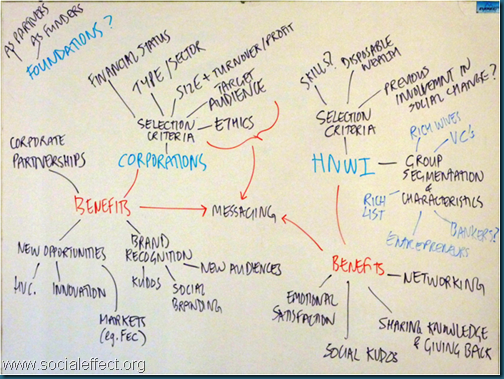 AS PARTNERS
AS FUNDERS
FOUNDATIONS?
FINANCIAL STATUS
TYPE/SECTOR
SIZE + TURNOVER/PROFIT
TARGET
AUDIENCE
ETHICS
SELECTION
CRITERIA
CORPORATIONS
CORPORATE
PARTNERSHIPS
BENEFITS
MESSAGING
NEW OPPORTUNITIES
INNOVATION
MARKETS
(eg. FEC)
BRAND
RECOGNITION
KUDOS
SOCIAL
BRANDING
NEW AUDIENCES
SKILLS?
DISPOSABLE
WEALTH
PREVIOUS
INVOLVMENT IN
SOCIAL CHANGE?
SELECTION
CRITERIA
HNWI
GROUP
SEGMENTATION
&
CHARACTERISTICS
RICH WIVES
VC's
RICH
LIST
BANKERS?
ENTREPRENEURS
BENEFITS
NETWORKING
EMOTIONAL
SATISFACTION
SOCIAL KUDOS
SHARING KNOWLEDGE
& GIVING BACK
www.socialeffect.org